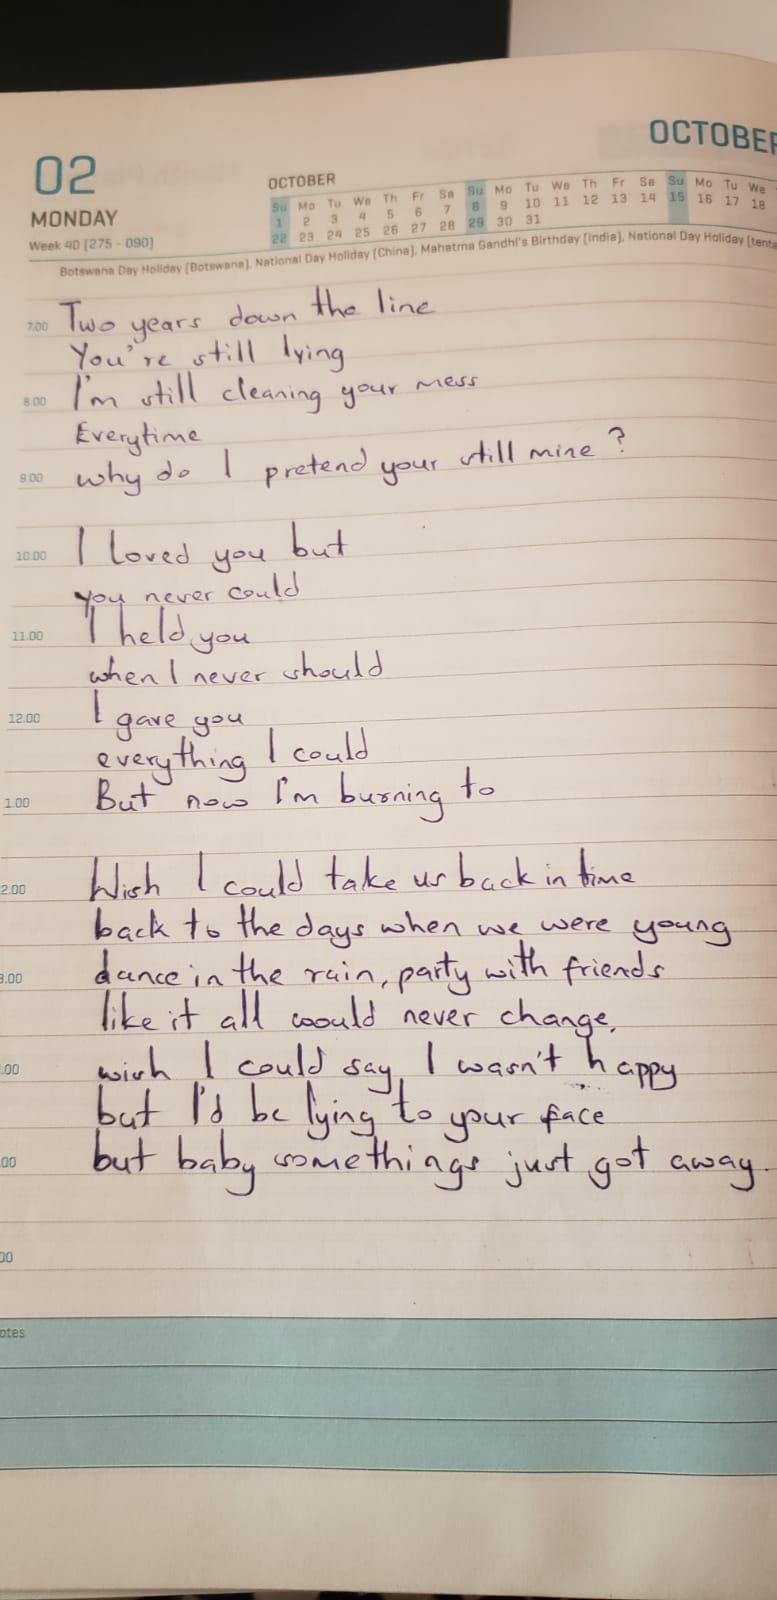 OCTOBER
02
MONDAY
Week 40 (275 - 090)
OCTOBER
Su Mo Tu We Th Fr Sa Su Mo Tu We Th Fr Sa Su Mo Tu We
1 2 3 4 5 6 7 8 9 10 11 12 13 14 15 16 17 18
22 23 24 25 26 27 28 29 30 31
Botswana Day Holiday (Botswana), National Day Holiday (China), Mahatma Gandhi's Birthday (India), National Day Holiday (tenta
7.00 Two years down the line
You're still lying
8.00 I'm still cleaning your mess
Everytime
9.00 why do I pretend your still mine?
10.00 I loved you but
you never could
11.00 I held you
when I never should
12.00 I gave you
everything I could
1.00 But now I'm burning to
2.00 Wish I could take us back in time
back to the days when we were young
3.00 dance in the rain, party with friends
like it all would never change,
.00 wish I could say I wasn't happy
but I'd be lying to your face
00 but baby somethings just got away.
00
otes